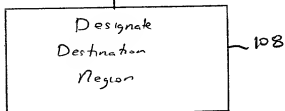 Designate
Destination
Region
108